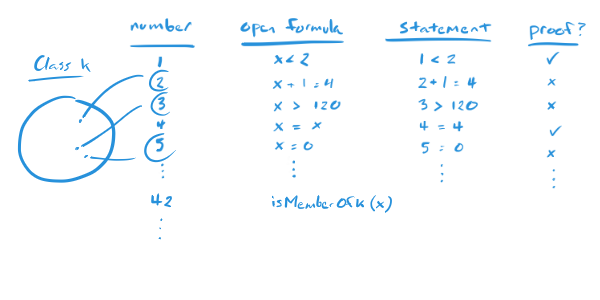 number open formula statement proof?
Class k
1 x < 2 1 < 2 ✓
2 x + 1 = 4 2 + 1 = 4 x
3 x > 120 3 > 120 x
4 x = x 4 = 4 ✓
5 x = 0 5 = 0 x
⋮ ⋮ ⋮ ⋮
42 isMemberOfK(x)
⋮